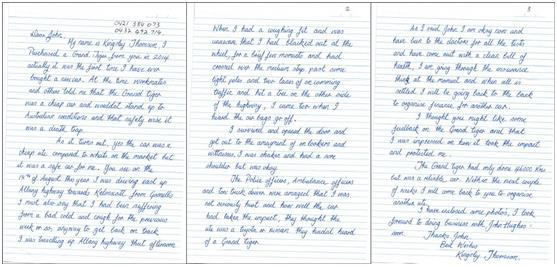 0421 384 073
0432 692 714
Dear John,
My name is Kingsley Thomson, I
Purchased a Grand Tiger from you in 2014
actually it was the first time I have ever
bought a new car. At the time workmates
and others told me that the Grand tiger
was a cheap car and wouldnt stand up to
Australian conditions and that safety wise it
was a death trap.
As it turns out, yes the car was a
cheap ute compared to whats on the market but
it was a safe car for me. You see on the
15th of August this year I was driving east up
Albany highway towards Kelmscott from Gosnells
I must also say that I had been suffering
from a bad cold and cough for the previous
week or so, anyway to get back on track
I was travelling up Albany highway that afternoon
2
When I had a coughing fit and was
unaware that I had blacked out at the
wheel, for a brief few moments and had
crossed over the medium strip past some
light poles and two lanes of on comming
traffic and hit a tree on the other side
of the highway, I came two when I
heard the air bags go off.
I survived and opened the door and
got out to the amazment of on lookers and
witnesses, I was shaken and had a sore
shoulder but was okay.
The Police officers, Ambulance, officers
and tow truck driver were amazed that I was
not seriously hurt and how well the car
had taken the impact, they thought the
ute was a toyota or nissan they hadnt heard
of a Grand Tiger.
3
As I said John I am okay now and
have been to the doctors for all the tests
and have come out with a clear bill of
health, I am going through the insurance
thing at the moment and when all is
settled I will be going back to the bank
to organise finance for another car.
I thought you might like some
feedback on the Grand tiger and that
I was impressed on how it took the impact
and protected me.
The Grand tiger had only done 46000 kms
but was a reliable car. Within the next couple
of weeks I will come back to you to organise
another ute.
I have enclosed some photos, I look
forward to doing business with John Hughes
soon.
Thanks John
Best Wishes
Kingsley Thomson.